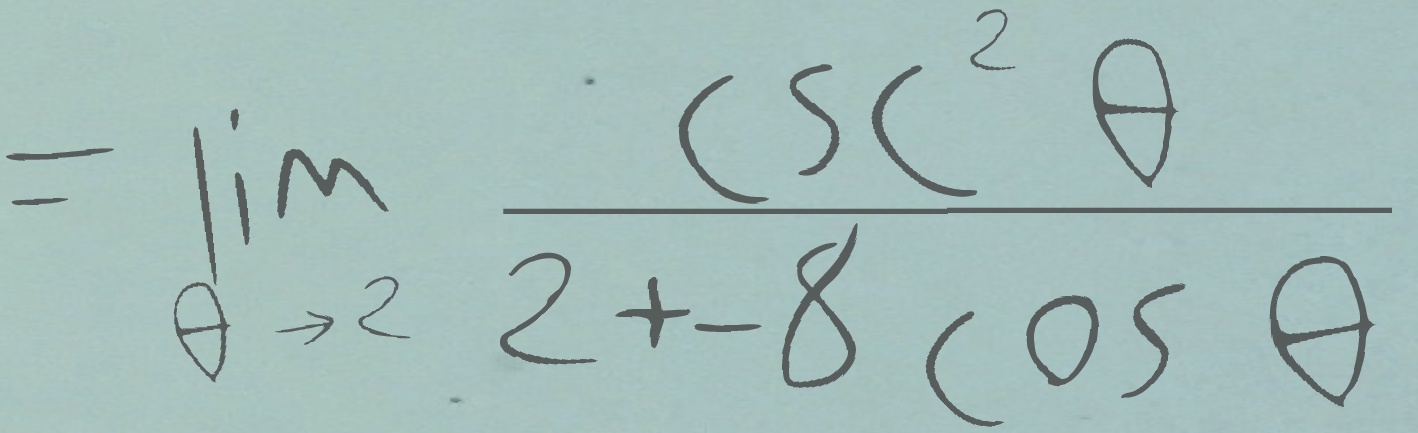 = \lim_{\theta \to 2} \frac{\csc^2 \theta}{2 + -8 \cos \theta}